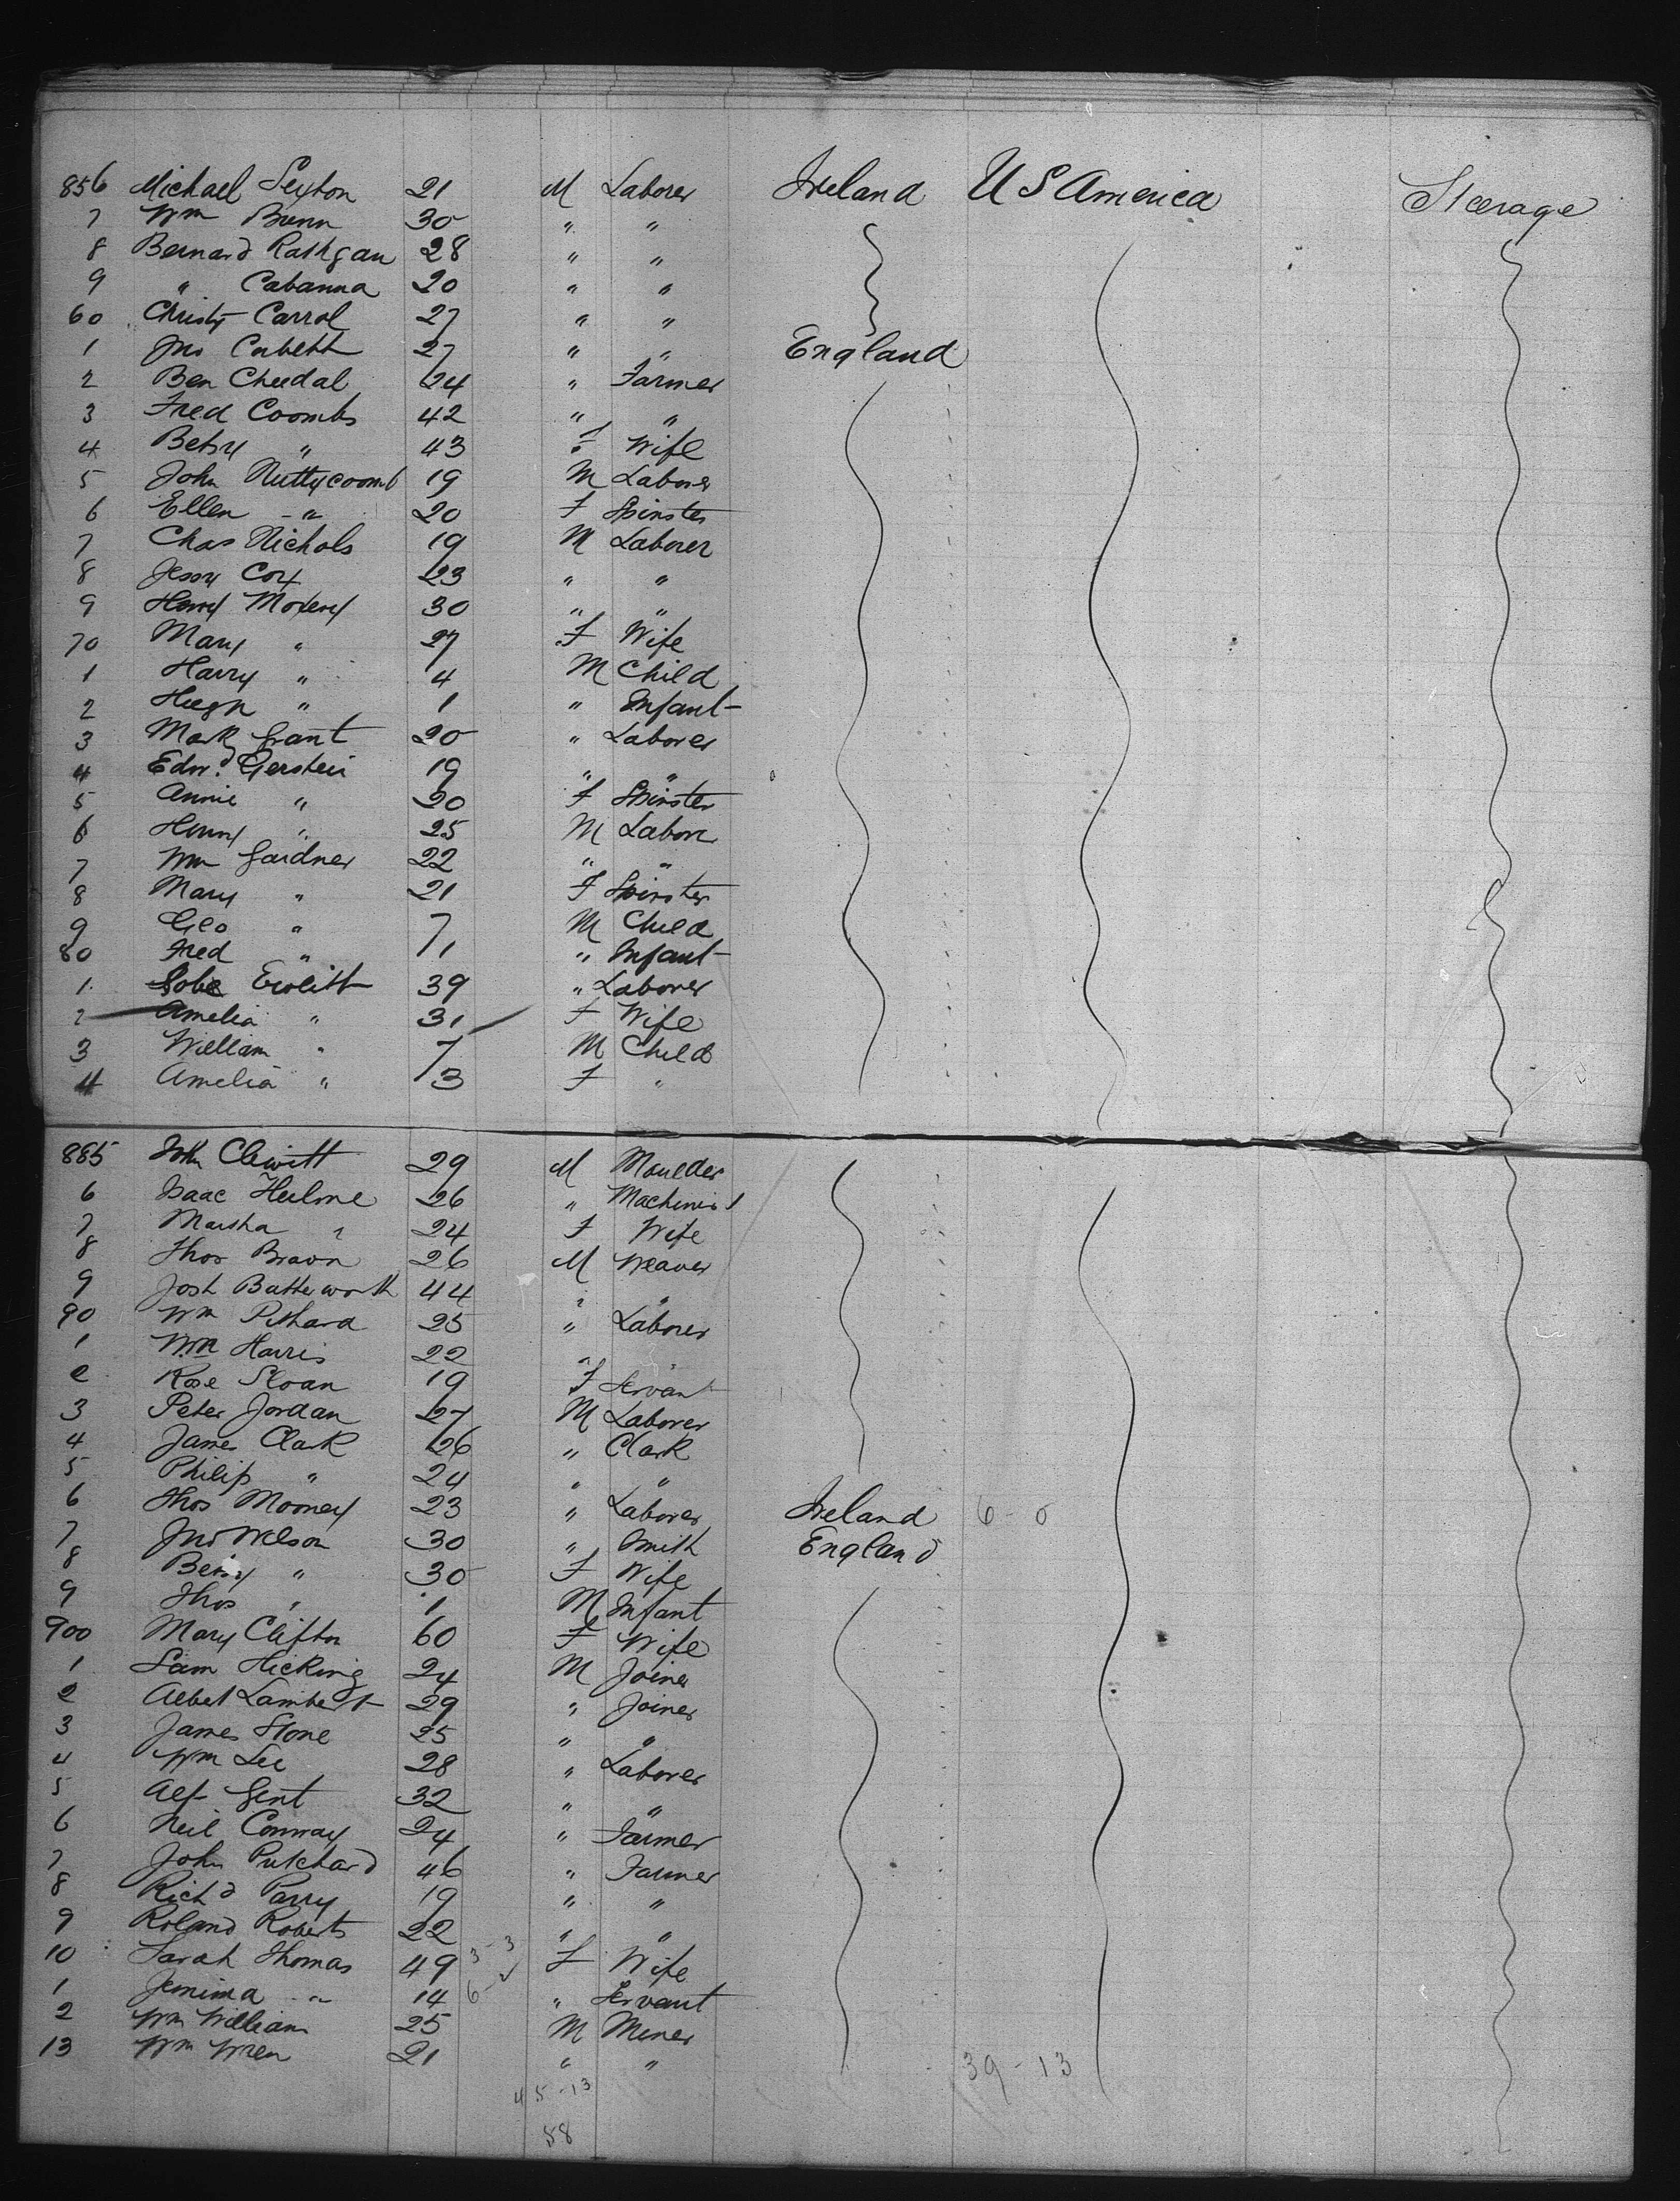 856 Michael Sexton 21 M Laborer Ireland US America Steerage
7 Wm Brenn 30 " "
8 Bernard Rathgan 28 " "
9 " Cabanna 20 " "
60 Christy Carrol 27 " "
1 Jno Corbett 27 " " England
2 Ben Cheedal 24 " Farmer
3 Fred Coombs 42 " "
4 Betsy " 43 F Wife
5 John Nuttycoomb 19 M Laborer
6 Ellen " 20 F Spinster
7 Chas Nichols 19 M Laborer
8 Jessy Cox 23 " "
9 Henry Moxeny 30 " "
70 Mary " 27 F Wife
1 Harry " 4 M Child
2 Hugh " 1 " Infant
3 Mark Grant 20 " Laborer
4 Edwd Gerstein 19 " "
5 Annie " 20 F Spinster
6 Henry " 25 M Labore
7 Wm Gardner 22 " "
8 Mary " 21 F Spinster
9 Geo " 7 M Child
80 Fred " 1 " Infant
1 39 " Laborer
2 Amelia " 31 F Wife
3 William " 7 M Child
4 Amelia " 3 F "
885 John Clewitt 29 M Moulder
6 Isaac Hulme 26 " Machinist
7 Martha " 24 F Wife
8 Thos Brown 26 M Weaver
9 Josh Butterworth 44 " "
90 Wm Pithara 25 " Laborer
1 Wm Harris 22 "
2 Rose Sloan 19 F Servant
3 Peter Jordan 27 M Laborer
4 James Clark 26 " Clark
5 Philip " 24 " "
6 Thos Mooney 23 " Laborer Ireland 6 - 0
7 Jno Wilson 30 " Smith England
8 Betsy " 30 F Wife
9 Thos " 1 M Infant
900 Mary Clifton 60 F Wife
1 Sam Hicking 24 M Joiner
2 Albert Lambert 29 " Joiner
3 James Stone 25 " "
4 Wm Lee 28 " Laborer
5 Alf Gent 32 " "
6 Neil Conway 24 " Farmer
7 John Putchard 46 " Farmer
8 Richd Parry 19 " "
9 Roland Roberts 22 " "
10 Sarah Thomas 49 3-3 F Wife
1 Jemima " 14 6- " Servant
2 Wm William 25 M Miner
13 Wm Wren 21 " " 39 - 13
45-13
58